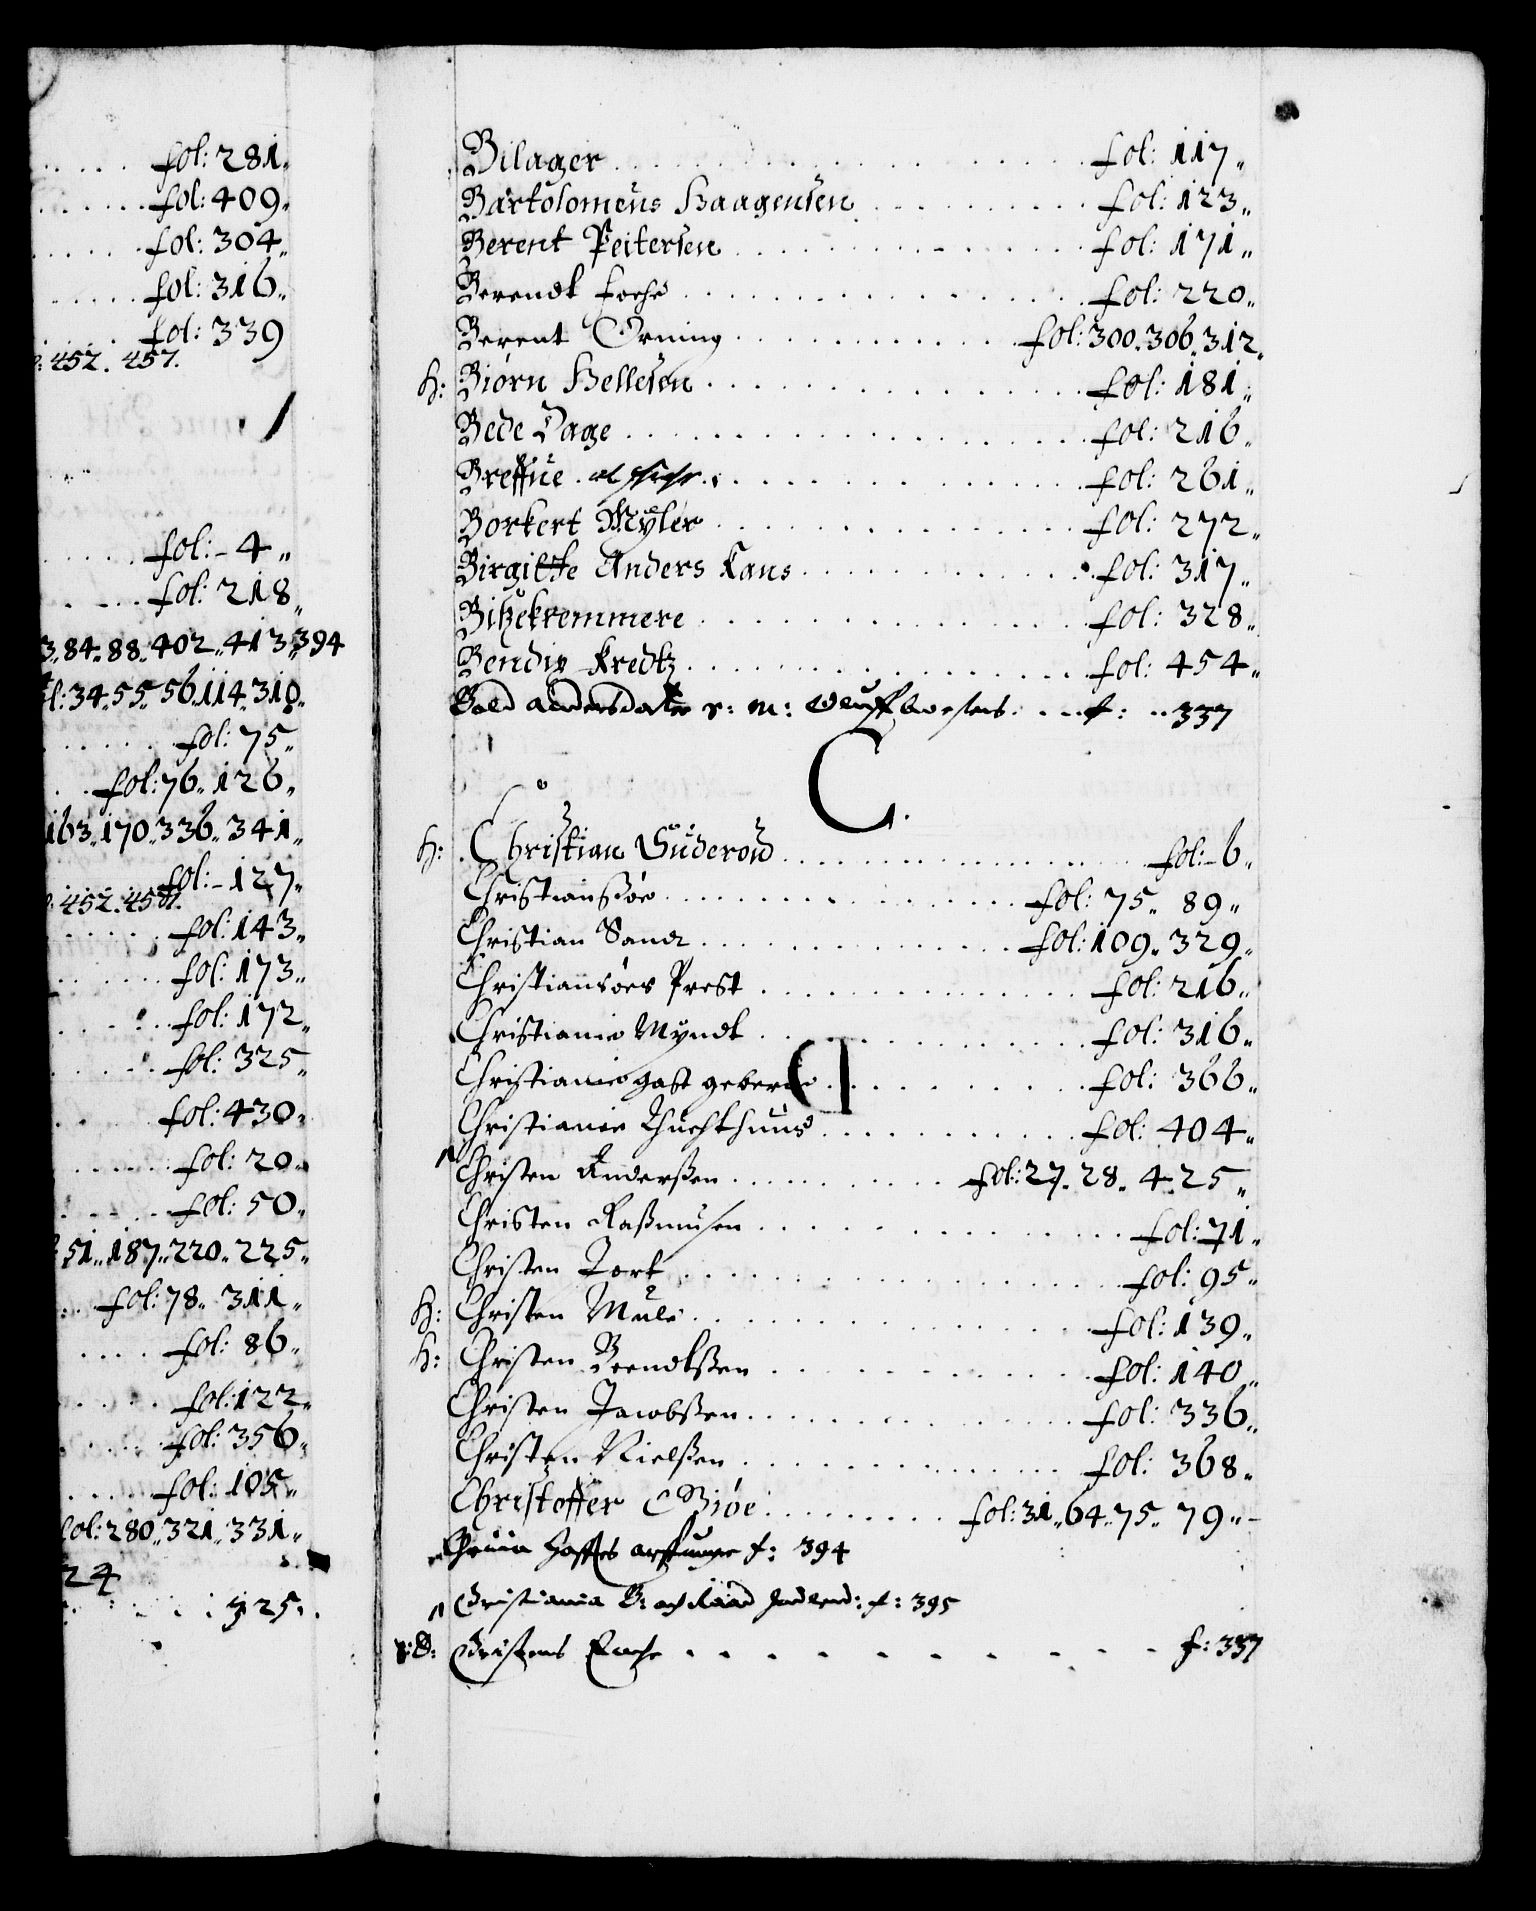 fol: 281„
fol: 409„
fol: 304„
fol: 316„
fol: 339
: 452. 457.
fol:- 4 „
fol: 218„
3„ 84„ 88„ 402„ 413„ 394
l: 34„ 55„ 56„ 114„ 310„
fol: 75„
fol: 76„ 126„
163„ 170„ 336„ 341„
fol:- 127„
: 452. 457.
fol: 143„
fol: 173„
fol: 172„
fol: 325„
fol: 430„
fol: 20„
fol: 50„
51„ 187„ 220„ 225„
fol: 78„ 311„
fol: 86„
fol: 122„
fol: 356„
fol: 105„
fol: 280„ 321„ 331„
24
325„
Bilager fol: 117„
Bartolomeus Haagensen fol: 123„
Berent Peitersen fol: 171„
Berendt fol: 220„
Berent Orning fol: 300„ 306„ 312„
H: Biørn Hellesen fol: 181„
Bede Dage fol: 216„
Breffue fol: 261„
Borkert Myler fol: 272„
Birgitte Anders Kaus fol: 317„
Bitzekremmere fol: 328„
Bendix Kredtz fol: 454„
Bold Andersdatter s: m: Oluff f: 337
C.
H: Christian Güderöw fol:- 6„
Christiansøe fol: 75„ 89„
Christian Sandt fol: 109„ 329„
Christiansøes Prest fol: 216„
Christianie Myndt fol: 316„
Christianie gast geberne fol: 366„
Christianie Thuchthuus fol: 404„
Christen Anderßen fol: 27„ 28„ 4„ 25„
Christen Raßmusen fol: 71„
Christen Tork fol: 95„
H: Christen Mule fol: 139„
H: Christen Berendtßen fol: 140„
Christen Jacobßen fol: 336„
Christen Nielßen fol: 368„
Christoffer Giøe fol: 31„ 64„ 75„ 79„
arffuinger f: 394
Christiania B: och Raad f: 395
S:D: Christens f: 337